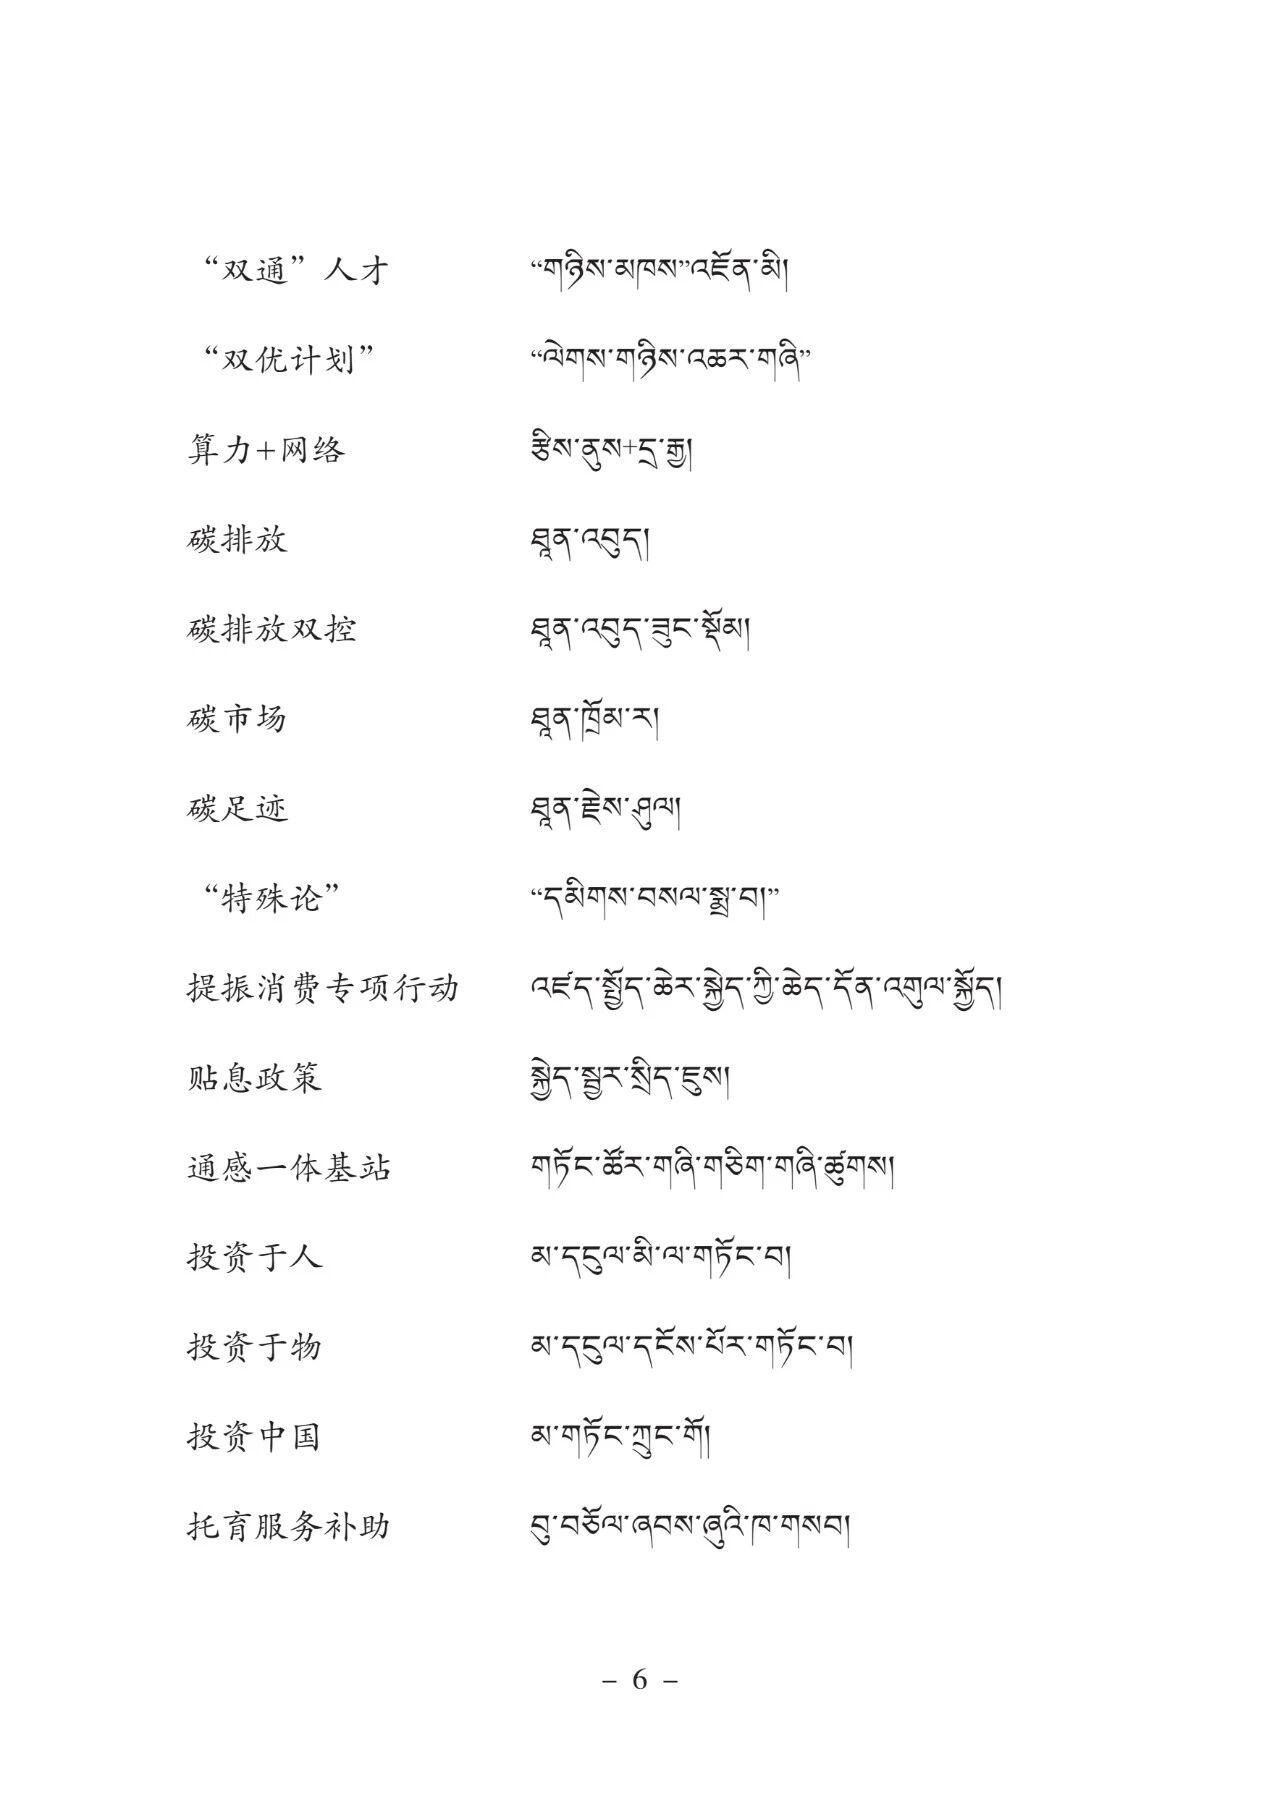 “双通”人才 “གཉིས་མཁས”འཇོན་མི།
“双优计划” “ལེགས་གཉིས་འཆར་གཞི”
算力+网络 རྩིས་ནུས+དྲ་རྒྱ།
碳排放 ཐཱན་འབུད།
碳排放双控 ཐཱན་འབུད་ཟུང་སྡོམ།
碳市场 ཐཱན་ཁྲོམ་ར།
碳足迹 ཐཱན་རྗེས་ཤུལ།
“特殊论” “དམིགས་བསལ་སྨྲ་བ།”
提振消费专项行动 འཛད་སྤྱོད་ཆེར་སྐྱེད་ཀྱི་ཆེད་དོན་འགུལ་སྐྱོད།
贴息政策 སྐྱེད་སྦྱར་སྲིད་ཇུས།
通感一体基站 གཏོང་ཚོར་གཞི་གཅིག་གཞི་ཚུགས།
投资于人 མ་དངུལ་མི་ལ་གཏོང་བ།
投资于物 མ་དངུལ་དངོས་པོར་གཏོང་བ།
投资中国 མ་གཏོང་ཀྲུང་གོ།
托育服务补助 བུ་བཅོལ་ཞབས་ཞུའི་ཁ་གསབ།
– 6 –